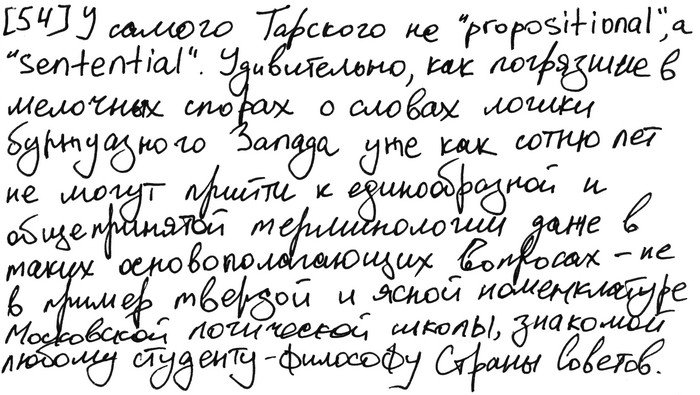 [54] У самого Тарского не "propositional", а
"sentential". Удивительно, как погрязшие в
мелочных спорах о словах логики
буржуазного Запада уже как сотню лет
не могут прийти к единообразной и
общепринятой терминологии даже в
таких основополагающих вопросах – не
в пример твердой и ясной номенклатуре
Московской логической школы, знакомой
любому студенту-философу Страны Советов.